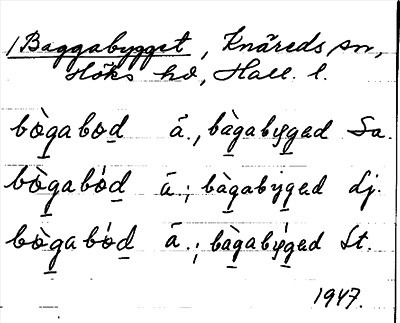 /Baggabygget, Knäreds sn,
Höks hd, Hall. l.
bògabod ā., bàgabyged Sa.
bògabód ā; bàgabyged Lj.
bògabód ā.; bàgabýged St.
1947.